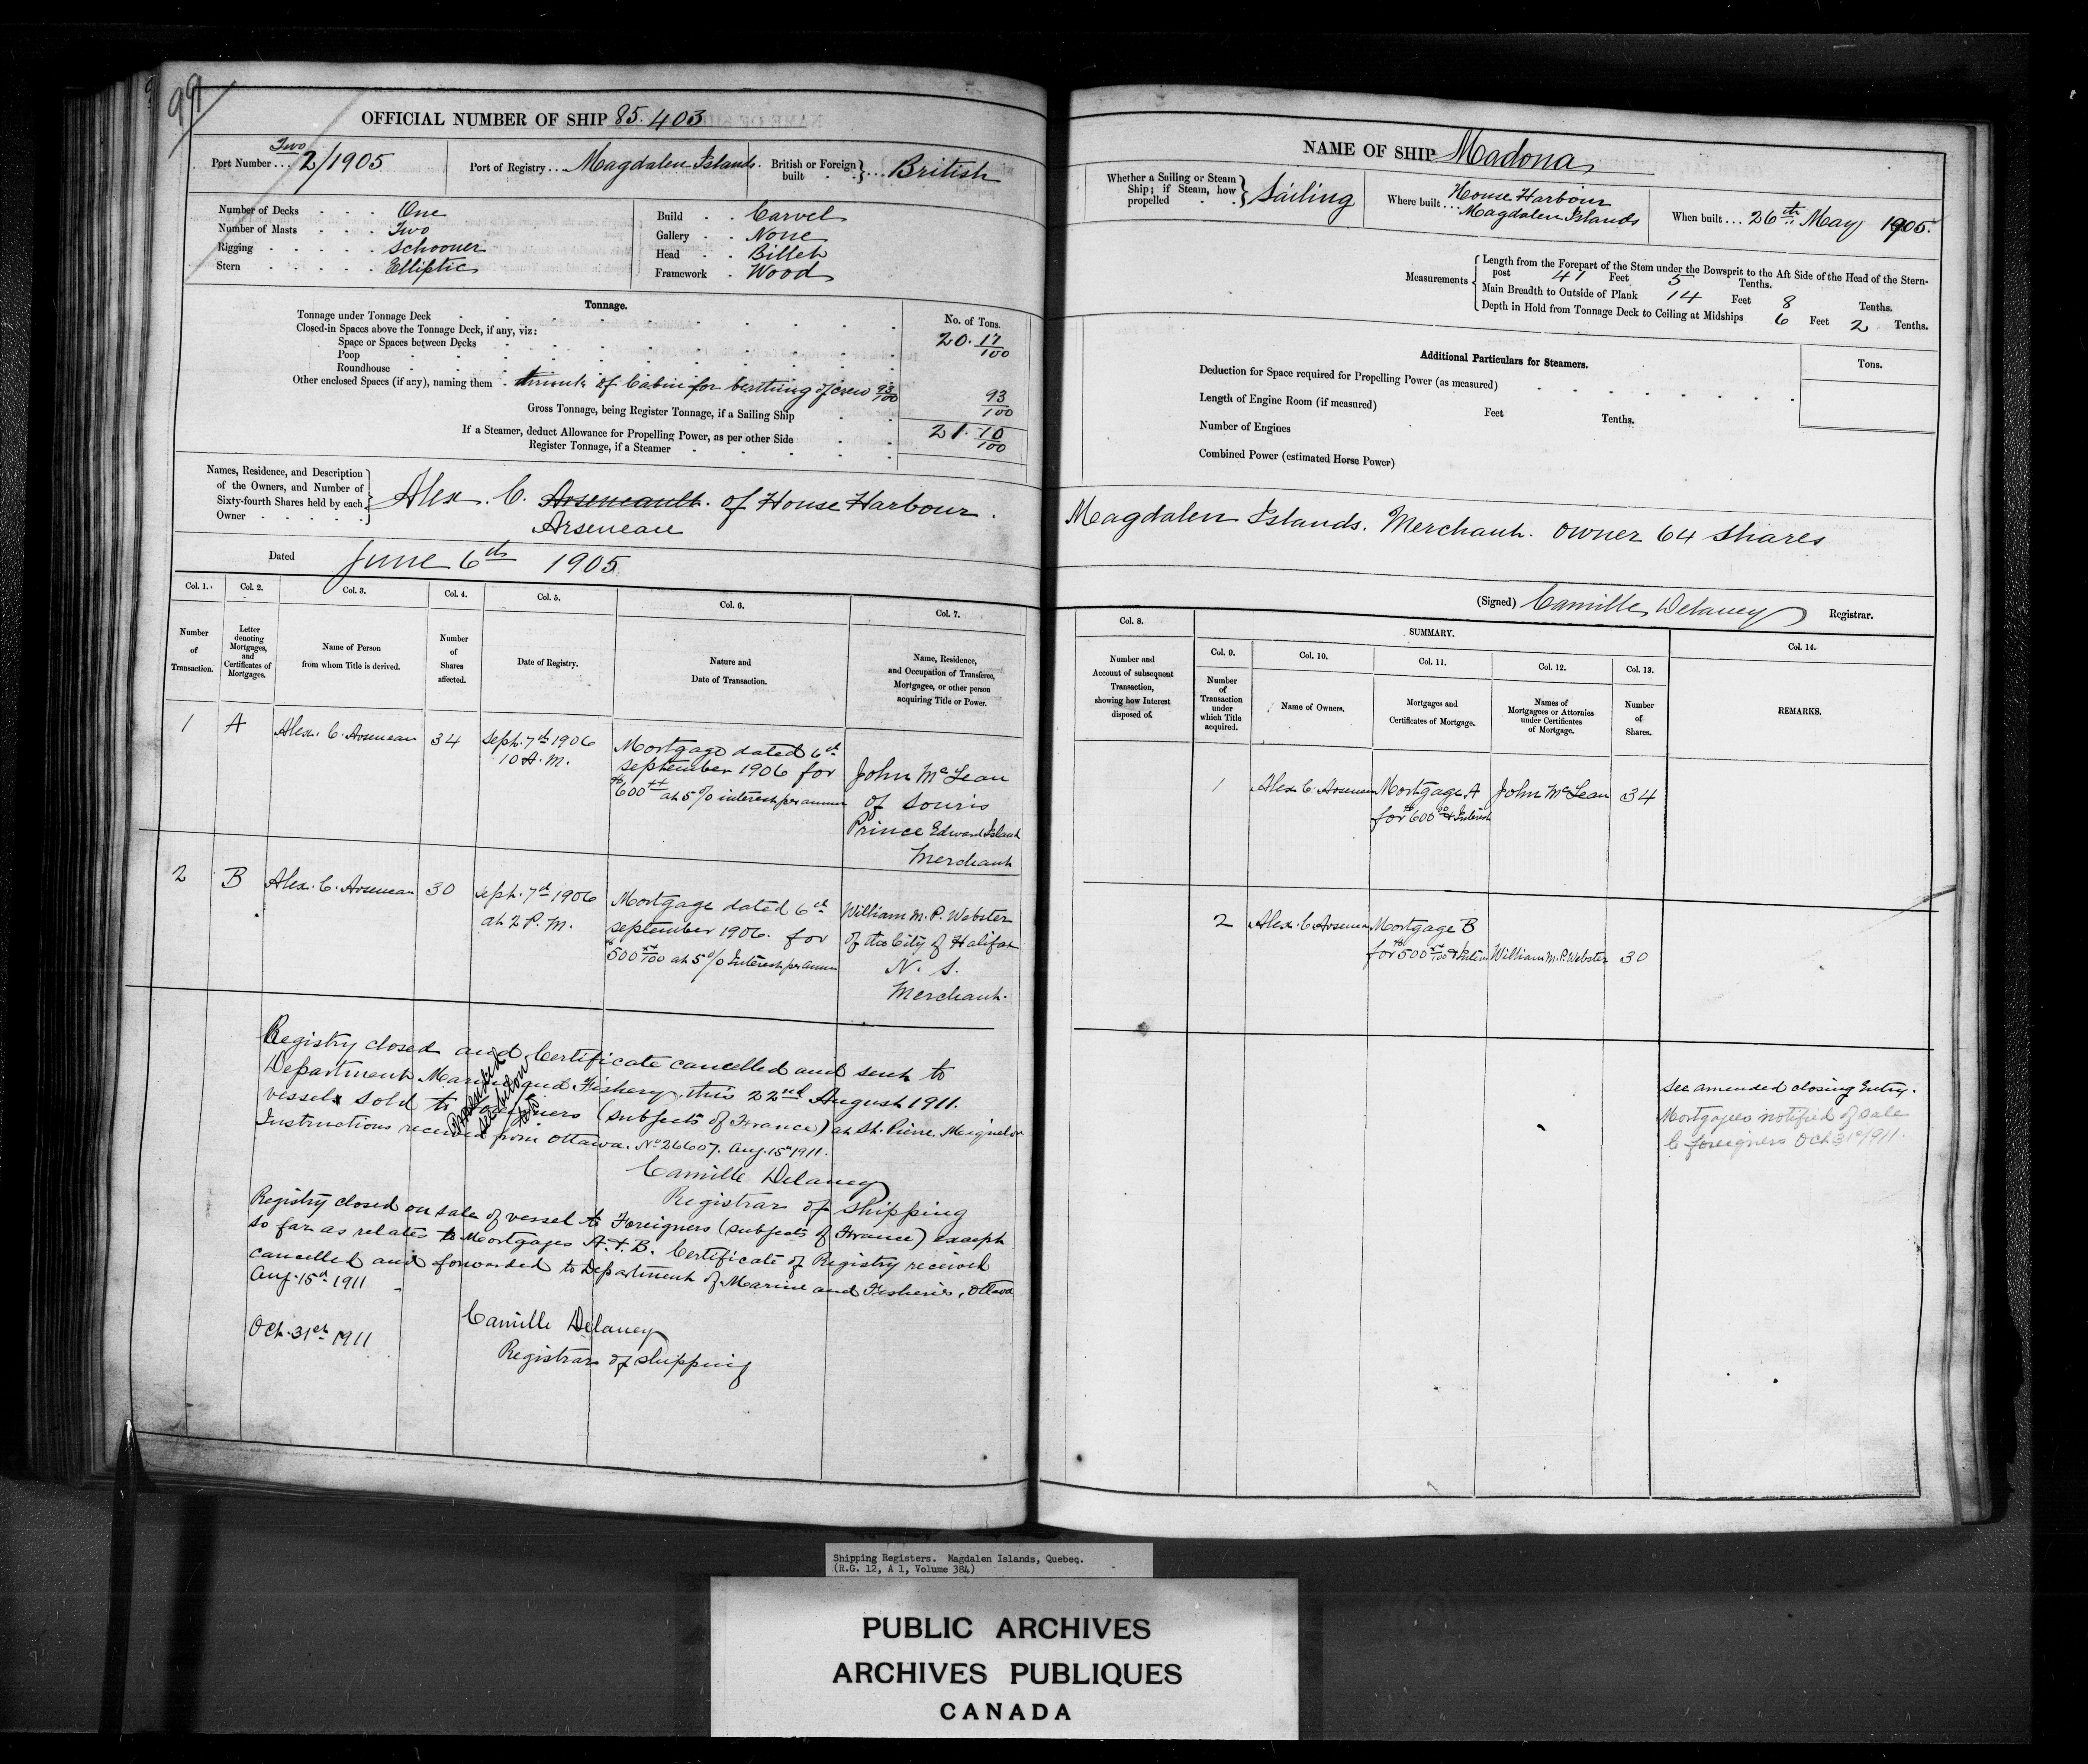 99
OFFICIAL NUMBER OF SHIP 85.403
Two
Port Number ... 2/1905
Port of Registry ... Magdalen Islands.
British or Foreign built } ... British
Number of Decks . . . One
Number of Masts . . . Two
Rigging . . . . . Schooner
Stern . . . . . Elliptic
Build . . Carvel
Gallery . . None
Head . . Billet
Framework . Wood
Tonnage.
No. of Tons.
Tonnage under Tonnage Deck
20. 17/100
Closed-in Spaces above the Tonnage Deck, if any, viz:
Space or Spaces between Decks
Poop
Roundhouse
Other enclosed Spaces (if any), naming them of Cabin for berthing of crew 93/100
93/100
Gross Tonnage, being Register Tonnage, if a Sailing Ship
21. 10/100
If a Steamer, deduct Allowance for Propelling Power, as per other Side
Register Tonnage, if a Steamer
Names, Residence, and Description
of the Owners, and Number of
Sixty-fourth Shares held by each
Owner
Alex. C. Arseneault. of House Harbour.
Arseneau
Dated June 6th 1905
Col. 1.
Number
of
Transaction.
Col. 2.
Letter
denoting
Mortgages,
and
Certificates of
Mortgages.
Col. 3.
Name of Person
from whom Title is derived.
Col. 4.
Number
of
Shares
affected.
Col. 5.
Date of Registry.
Col. 6.
Nature and
Date of Transaction.
Col. 7.
Name, Residence,
and Occupation of Transferee,
Mortgagee, or other person
acquiring Title or Power.
1
A
Alex. C. Arseneau
34
Sept. 7th 1906
10 A. M.
Mortgage dated 6th
September 1906 for
$600 xx at 5% interest per annum
John McLean
of Souris
Prince Edward Island
Merchant
2
B
Alex. C. Arseneau
30
Sept. 7th 1906
at 2 P. M.
Mortgage dated 6th
September 1906. for
$500 xx/100 at 5% Interest per annum
William M. P. Webster
of the City of Halifax
N. S.
Merchant.
Registry closed and Certificate cancelled and sent to
Department Marine and Fishery. this 22nd August 1911.
vessel sold to Foreigners (subjects of France) at St. Pierre. Miquelon
Instructions received from Ottawa. No 26607. Aug. 15th 1911.
Camille Delaney
Registrar of Shipping
Registry closed on sale of vessel to Foreigners (subjects of France) except
so far as relates to Mortgages A. & B. Certificate of Registry received
cancelled and forwarded to Department of Marine and Fisheries, Ottawa
Aug. 15th 1911
Camille Delaney
Oct. 31st 1911
Registrar of Shipping
NAME OF SHIP Madona
Whether a Sailing or Steam
Ship; if Steam, how
propelled
Sailing
Where built ... House Harbour
Magdalen Islands
When built ... 26th May 1905.
Measurements
Length from the Forepart of the Stem under the Bowsprit to the Aft Side of the Head of the Stern-
post 41 Feet 5 Tenths.
Main Breadth to Outside of Plank 14 Feet 8 Tenths.
Depth in Hold from Tonnage Deck to Ceiling at Midships 6 Feet 2 Tenths.
Additional Particulars for Steamers.
Tons.
Deduction for Space required for Propelling Power (as measured)
Length of Engine Room (if measured) Feet Tenths.
Number of Engines
Combined Power (estimated Horse Power)
Magdalen Islands. Merchant. owner 64 shares
(Signed) Camille Delaney Registrar.
Col. 8.
Number and
Account of subsequent
Transaction,
showing how Interest
disposed of.
SUMMARY.
Col. 9.
Number
of
Transaction
under
which Title
acquired.
Col. 10.
Name of Owners.
Col. 11.
Mortgages and
Certificates of Mortgage.
Col. 12.
Names of
Mortgagees or Attornies
under Certificates
of Mortgage.
Col. 13.
Number
of
Shares.
Col. 14.
REMARKS.
1
Alex C. Arseneau
Mortgage A
for $600 & Interest
John McLean
34
2
Alex. C. Arseneau
Mortgage B
for $500 xx/100 & Interest
William M. P. Webster
30
See amended closing Entry.
Mortgagees notified of sale
to foreigners Oct 31st 1911.
Shipping Registers. Magdalen Islands, Quebeq.
(R.G. 12, A 1, Volume 384)
PUBLIC ARCHIVES
ARCHIVES PUBLIQUES
CANADA